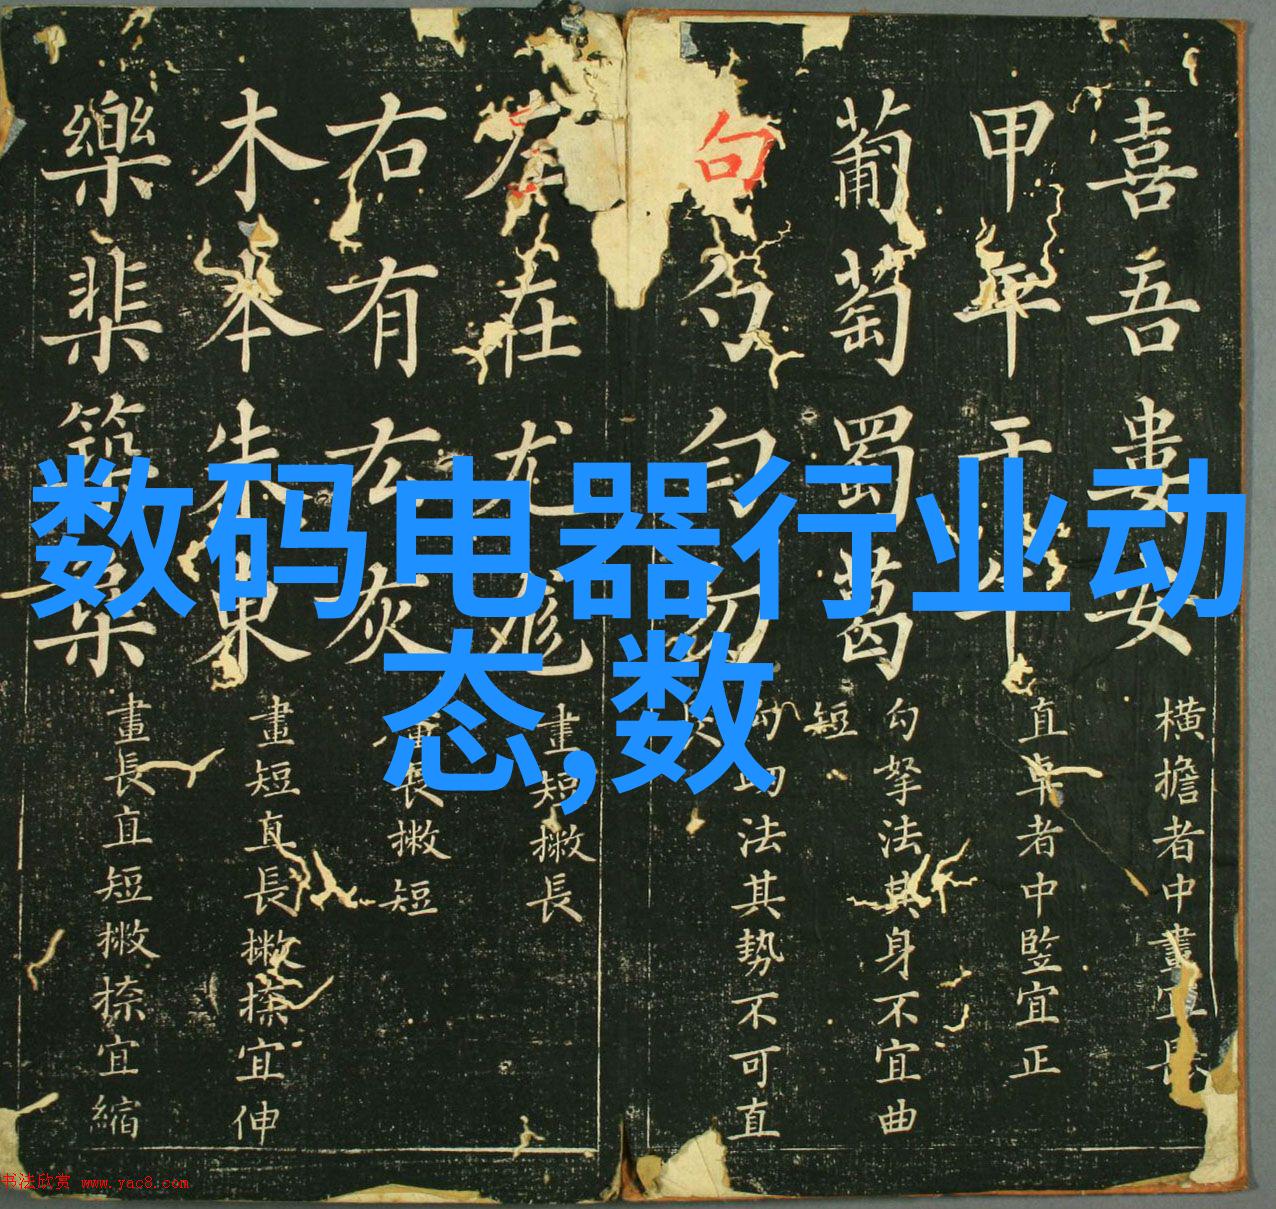 数码电器行业动
态,数
喜吾婁安
橫擔者中畫宜長
甲平干午
直卓者中竪宜正
葡萄蜀葛
勾拏法其身不宜曲
短
句勹勻勿
勾拗法其势不可直
左在尤尨
畫短撇長
右有厷灰
畫長撇短
木本朱東
畫短直長撇捺宜伸
樂棐築
畫長直短撇捺宜縮
书法欣赏 www.yac8.com